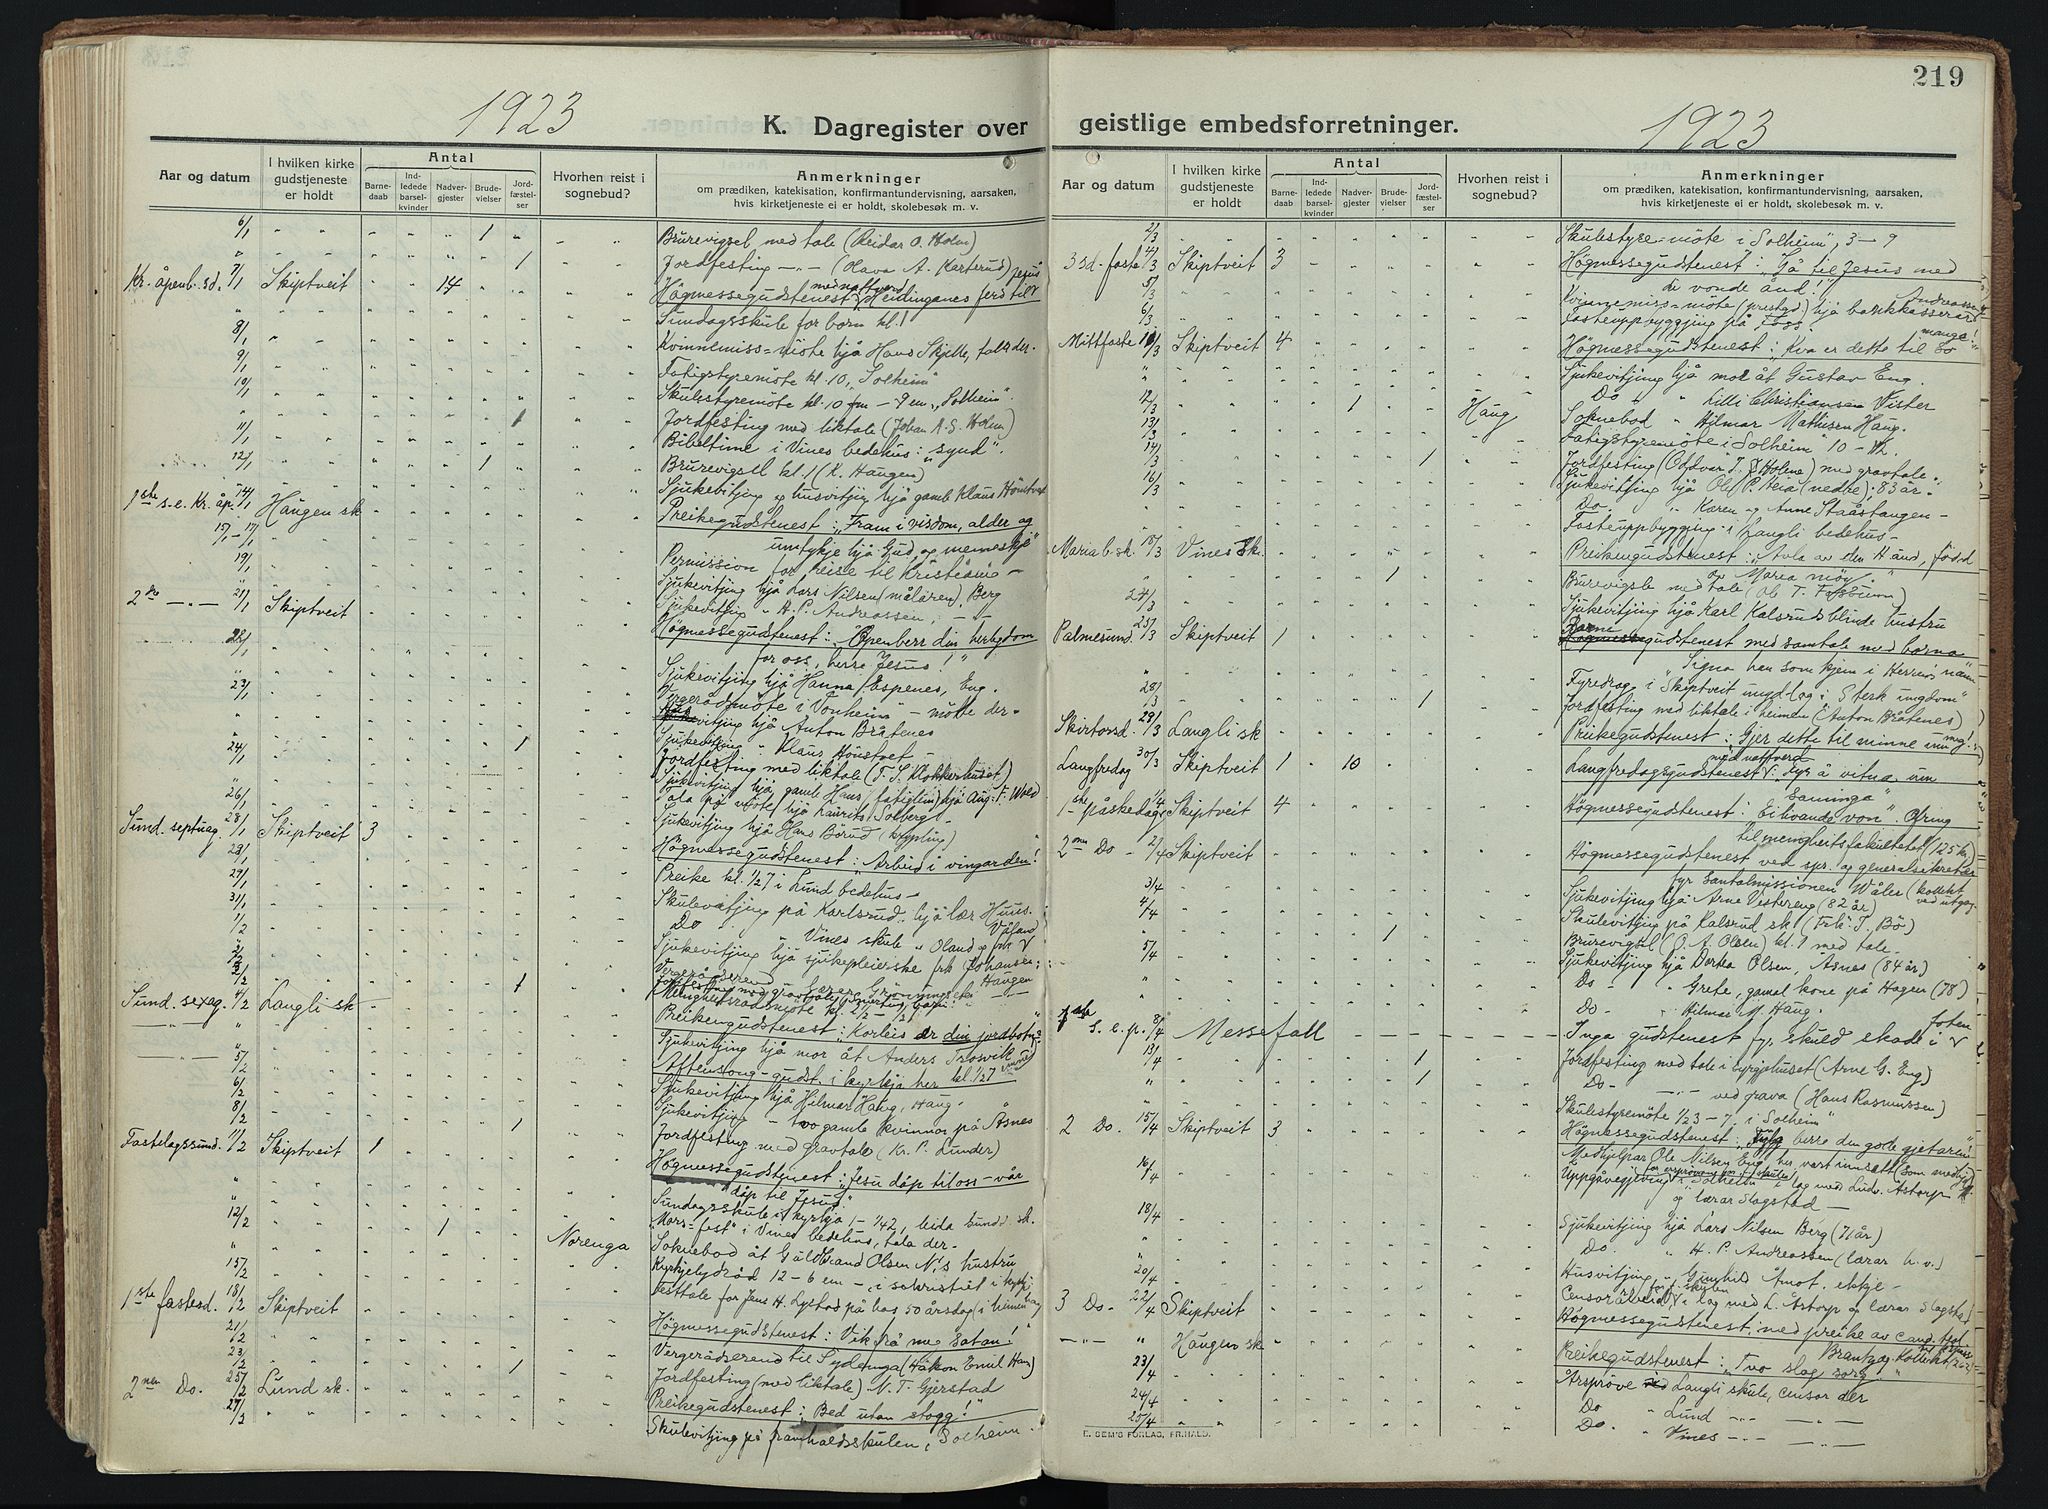 219
1923
K. Dagregister over
Aar og datum
I hvilken kirke gudstjeneste er holdt
Antal
Barnedaab
Indledede barselkvinder
Nadvergjester
Brudevielser
Jordfæstelser
Hvorhen reist i sognebud?
Anmerkninger
om prædiken, katekisation, konfirmantundervisning, aarsaken,
hvis kirketjeneste ei er holdt, skolebesøk m. v.
6/1 " " " " " 1 " " " Brurevigsel med tale (Reidar O. Holm)
" " " 1 Jordfesting —"— (Olava A. Karterud)
Kr. åpenb. sd. 7/1 Skiptveit " " 14 Høgmessegudstenest med nattverd Heidinganes ferd til Jesus
Sundagsskule for born kl. 1
8/1 Kvinnemiss=møte hjå Hans Skjelle, tala der.
9/1 Fatigstyremøte kl. 10, "Solheim"
10/1 Skulestyremøte kl. 10 fm — 9 em "Solheim".
" 1 Jordfesting med liktale (Johan A. S. Holm)
11/1 Bibeltime i Vines bedehus: "synd".
12/1 1 Brurevigsel kl. 1 (K. Haugen)
Sjukevitjing og husvitjing hjå gamle Klaus Hönstvet
1ste s. e. Kr. åp. 14/1 Haugen sk Preikegudstenest: "Fram i visdom, alder og
umtykje hjå Gud og menneskje"
15/1 - 17/1 Permission for reise til Kristiania —
19/1 Sjukevitjing hjå Lars Nilsen (målaren), Berg
" Sjukevitjing " H. P. Andreassen, —"—
2do —"— 21/1 Skiptveit Høgmessegudstenest: "Openberr din herlegdom
for oss, herre Jesus!"
22/1 Sjukevitjing hjå Hanna Espenes, Eng.
" Vergerådsmøte i Vonheim — møtte der.
23/1 Sjukevitjing hjå Anton Bråtenes
" Sjukevitjing " Klaus Hönstvet
24/1 1 Jordfesting med liktale (T. S. Klokkerhuset)
" Sjukevitjing hjå gamle Hans (fatiglem) hjå Aug. F. Wold
26/1 Tala på møte hjå Laurits Solberg
Sjukevitjing hjå Hans Börud (kyplling)
Sund. septuag. 28/1 Skiptveit 3 Høgmessegudstenest: Arbeid i vingarden!
Preike kl. 1/2 7 i Lund bedehus —
29/1 Skulevitjing på Karlsrud hjå lær. Huus.
31/1 Do " Vines skule " Oland og frk Våland
1/2 Sjukevitjing hjå sjukepleierske frk Johansen
2/2 1 Jordfesting med gravtale
Menighetsrådsmøte kl.
Sund. sexag. 4/2 Langli sk Preikengudstenest: "Korleis er din jordbotn?"
Sjukevitjing hjå mor åt Anders Trosvik
Aftensong-gudst. i kyrkja her kl. 1/2 7
5/2 Sjukevitjing hjå Hilmar Haug, Haug.
6/2 Sjukevitjing — two gamle kvinnor på Åsnes
8/2 1 Jordfesting med gravtale (Kr. P. Lunder)
Fastelagssund. 11/2 Skiptveit 1 Høgmessegudstenest: "Jesu dåp til oss — vår
dåp til Jesus"
Sundagsskule i kyrkja 1 — 1/4 2, leida sund. sk.
"Mors=fest" i Vines bedehus, tala der.
12/2 1 Norenga Soknebod åt Guldbrand Olsen N's hustru
" Kyrkjelydråd 12 — 6 em — i sakristiet i kyrkja
15/2 Festtale for Jens H. Lystad på has 50 årsdag (i heimen has)
1ste fastesd. 18/2 Skiptveit Høgmessegudstenest: Vik frå meg Satan!"
21/2 Vergerådserend til Syderenga (Håkon Emil Hans)
23/2 1 Jordfesting (med liktale) N. T. Gjerstad
2nen Do. 25/2 Lund sk. Preikegudstenest: "Bed utan stogg!"
27/2 Skulevitjing på framhaldsskulen, Solheim.
geistlige embedsforretninger.
1923
Aar og datum
I hvilken kirke gudstjeneste er holdt
Antal
Barnedaab
Indledede barselkvinder
Nadvergjester
Brudevielser
Jordfæstelser
Hvorhen reist i sognebud?
Anmerkninger
om prædiken, katekisation, konfirmantundervisning, aarsaken,
hvis kirketjeneste ei er holdt, skolebesøk m. v.
2/3 Skulestyre=møte i "Solheim", 3 — 9
3 sd. faste 4/3 Skiptveit 3 Høgmessegudstenest: "Gå til Jesus med
di vonde ånd!"
5/3 Kvinnemiss=møte (prestgd.) hjå bankkasserar Andreassen
6/3 Fasteuppbyggjing på Foss.
Mittfaste 11/3 Skiptveit 4 Høgmessegudstenest: "Kva er dette til so mange!"
" Sjukevitjing hjå mor åt Gustav Eng.
" Do " Lilli Christiansen Vister
12/3 1 Haug Soknebod " Hilmar Mathisen Haug.
13/3 Fatigstyremøte i "Solheim" 10 — 12.
14/3 1 Jordfesting (Oddvar T. J. Holene) med gravtale
16/3 Sjukevitjing hjå Ole P. Heia (nedre); 83 år
" Do. " Karen og Anne Stååstaugen —
" Fasteuppbyggjing i Langli bedehus —
Maria b. sk. 18/3 Vines sk. Preikengudstenest: "Avla av den H. ånd, född
av Maria möy."
" 1 Brurevigsle med tale (Ole T. Fossum)
21/3 Sjukevitjing hjå Karl Kalsruds blinde hustru
Palmesund. 25/3 Skiptveit 1 Barnegudstenest med samtale med borna
"Signa han som kjem i Herrens namn"
" Fyredrag i Skiptveit ungd.lag i "Sterk ungdom"
28/3 1 Jordfesting med liktale i heimen (Anton Bråtenes)
Skirtorsd. 29/3 Langli sk Preikegudstenest: Gjer dette til minne um meg!
Langfredag 30/3 Skiptveit 1 10 Langfredagsgudstenest med nattverd: Fyr å vitna um
sanninga"
1ste påskedag 1/4 Skiptveit 4 Høgmessegudstenest: Ei livande von". Ofring
til menighetsfakultetet (125 kr.)
2nen Do — 2/4 Skiptveit Høgmessegudstenest ved spr. og generalsikretær
fyr Santalmissionen Wåler (kollekt ved utgang.
3/4 Sjukevitjing hjå Arne Vestereng (82 år)
4/4 Skulevitjing på Kalsrud sk. (Frk. T. Bö)
5/4 1 Brurevigsel (O. A. Olsen) kl. 1 med tale.
" Sjukevitjing hjå Dorthea Olsen, Åsnes (84 år)
" Do — " Grete, gamal kone på Hagen (78)
" Do. " Hilmar M. Haug.
1ste s. e. p. 8/4 Messefall Inga gudstenest fyr skuld skade i foten
13/4 1 Jordfesting med tale i syrgjehuset (Arne G. Eng)
" 1 Do — —"— ved grava (Hans Rasmussen)
" Skulestyremøte 1/2 3 — 7, i "Solheim"
2 Do. 15/4 Skiptveit 3 Høgmessegudstenest: Fylg berre den gode gjetaren!"
Medhjelpar Ole Nilsen Eng her vart innsett (som medhj.)
16/4 Uppgåvegjeving i "Solheim" i lag med Ludv. Åstorp
og lærar Slagstad —
18/4 Sjukevitjing hjå Lars Nilsen Berg (71 år)
" Do. " H. P. Andreassen (lærar h. v.)
20/4 Husvitjing " Gunhild Åmot, ekkje —
Censorarbeid i lag med L. Åstorp og lærar Slagstad
3 Do. 22/4 Skiptveit Høgmessegudstenest, med preike av cand.
Brantzæg. Kollekt
—"— " Haugen sk Preikegudstenest: "Tvo slag sorg"
23/4 Årsprøve Langli skule, censor der
24/4 Do " Lund —"— —"—
25/4 Do. " Vines —"— —"—
E. SEM'S FORLAG, FR.HALD.